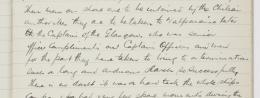 men were on shore are to be entertained by the Chilian
authorities they are to be taken to Valparaiso later
the Captain of the Glasgow, who was senior
officer complimented our Captain Officers and men
for the part they have taken to bring to a termination
such a long and arduous chase so successfully
there is no doubt it was a hard task the whole ships